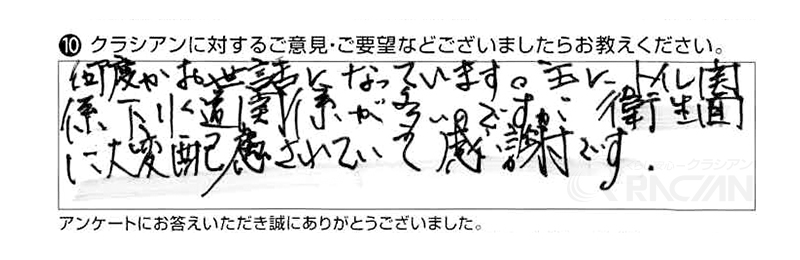 ❿ クラシアンに対するご意見・ご要望などございましたらお教えください。
何度かお世話になっています。主にトイレ関
係、下水道関係が多いのですが、衛生面
に大変配慮されていて感謝です.
アンケートにお答えいただき誠にありがとうございました。
クラシアン
QRACIAN